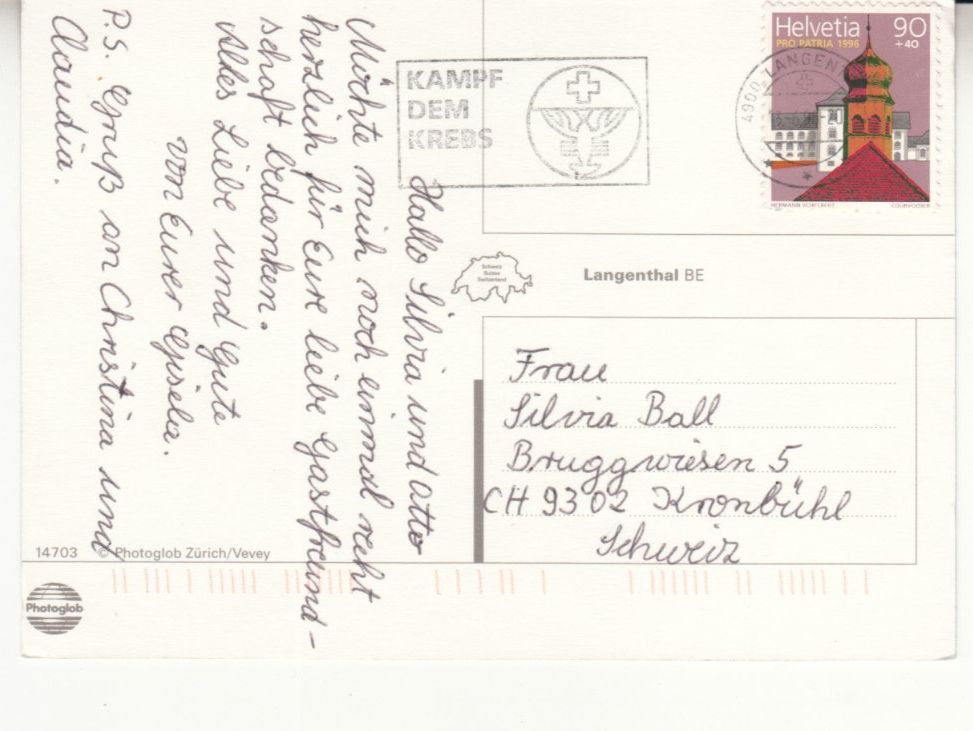 Hallo Silvia und Otto
Möchte mich noch einmal recht
herzlich für Eure liebe Gastfreund-
schaft bedanken.
Alles Liebe und Gute
von Eurer Gisela.
P.S. Gruß an Christina und
Claudia.
KAMPF
DEM
KREBS
Helvetia 90
PRO PATRIA 1996 +40
4900 LANGENT
HERMANN SCHELBERT COURVOISIER
Schweiz
Suisse
Switzerland
Langenthal BE
Frau
Silvia Ball
Bruggwiesen 5
CH 9302 Kronbühl
Schweiz
14703 © Photoglob Zürich/Vevey
Photoglob